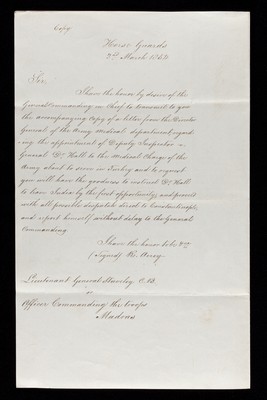 Copy
Horse Guards
2nd March 1854
Sir,
I have the honor by desire of the
General Commanding in Chief to transmit to you
the accompanying Copy of a letter from the Director
General of the Army Medical department regard
-ing the appointment of Deputy Inspector
General Dr. Hall to the Medical Charge of the
Army about to serve in Turkey and to request
you will have the goodness to instruct Dr. Hall
to leave India by the first opportunity and proceed
with all possible dispatch direct to Constantinople
and report himself without delay to the General
Commanding
I have the honor to be &c
(Signed)
Lieutenant General Staveley C.B.
or
Officer Commanding the troops
Madras